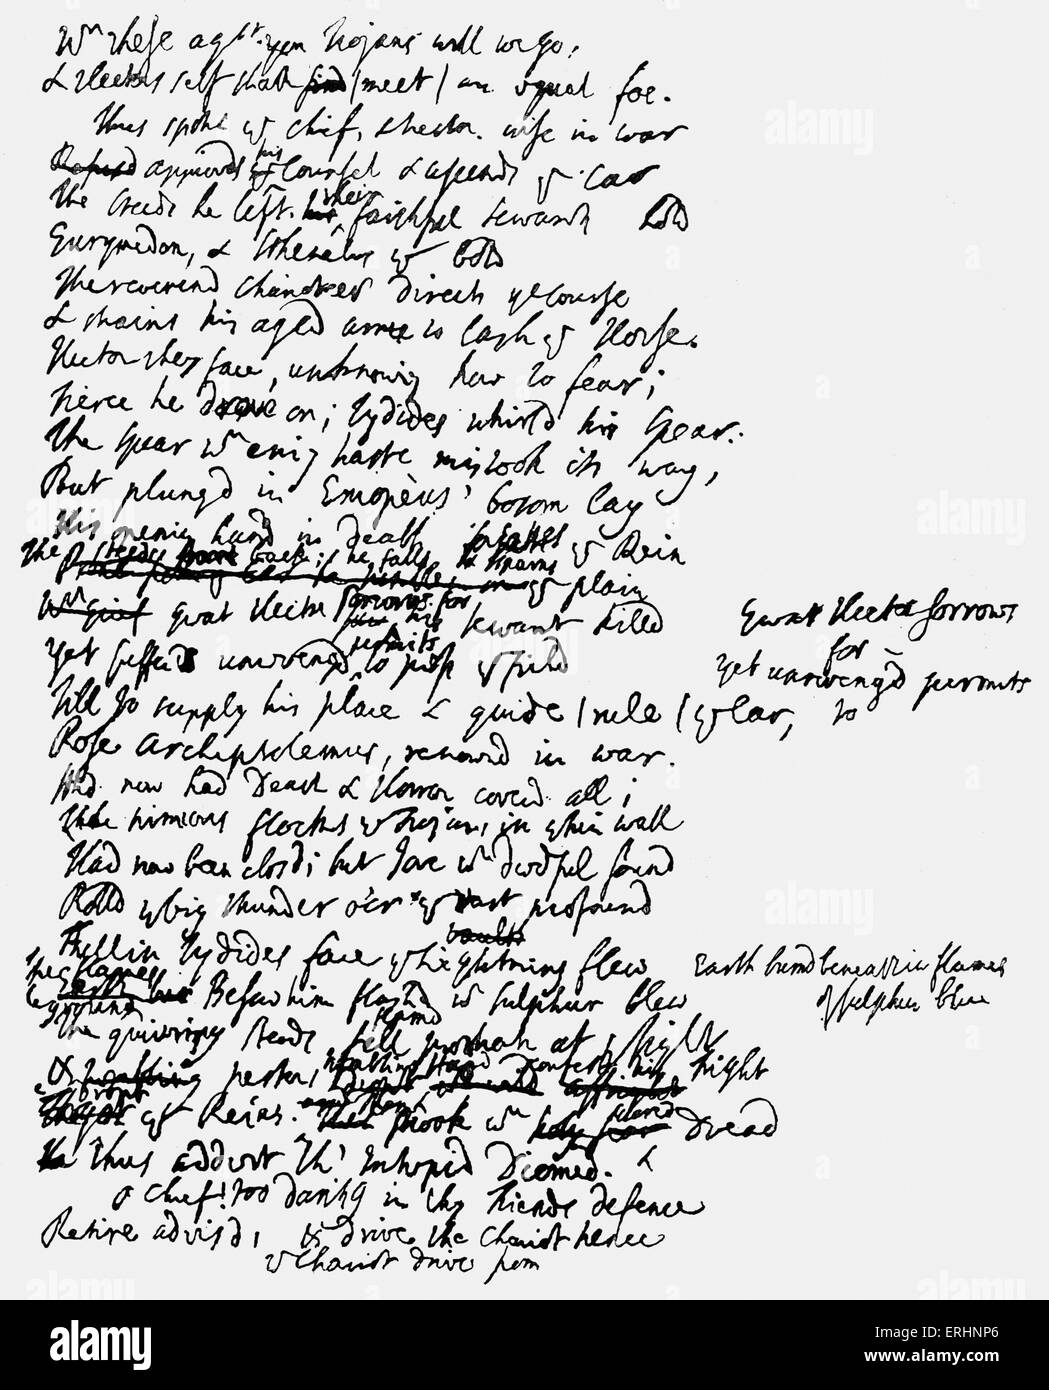 Wm. these agst. yon Trojans will we go,
& Hector's self shall find / meet / an equal foe.
Thus spoke ye chief, & Nestor. wise in war
Refus'd approv'd ye his Counsel & ascends ye Car
The steeds he left. his their faithful servants hold
Eurymedon, & Sthenelus ye bold
The reverend Charioteer directs ye Course
& strains his aged arme to lash ye Horse.
Hector they face, unknowing how to fear;
Fierce he drove on; Tydides whirl'd his Spear.
The Spear wm. erring haste mistook its way,
But plung'd in Eniopëus' bosom lay
His opening hand in death forsakes ye Rein
The steeds back; he falls & spurns ye plain
Wm. grief great Hector sorrows for his servant kill'd
Yet suffer'd unreveng'd permits to ye field
Great Hector sorrows for
Yet unreveng'd permits to
Till to supply his place & guide / rule / ye Car,
Rose Archeptolemus, renown'd in war.
And now had Death & Horror cover'd all;
like timorous flocks ye Trojans in their wall
Had now been clos'd; but Jove wm. dredful sound
Roll'd ye big thunder o'er ye vast profound
vault
Full in Tydides face ye lightning flew
Earth burnd beneath in flames of sulphur blue
the flames
Before him flash'd wm. sulphur blew
The quivering steeds fell prostrate at ye sight
& trembling Nestor, trembling hand confest his fright
He dropt ye Reins. shook wm. holy fear dread
& Thus adderst th' Intrepid Diomed.
o Chief! too daring in thy friends defence
Retire advis'd, & drive the Chariot hence
ye Chariot drive from
alamy
a
alamy
Image ID: ERHNP6
www.alamy.com